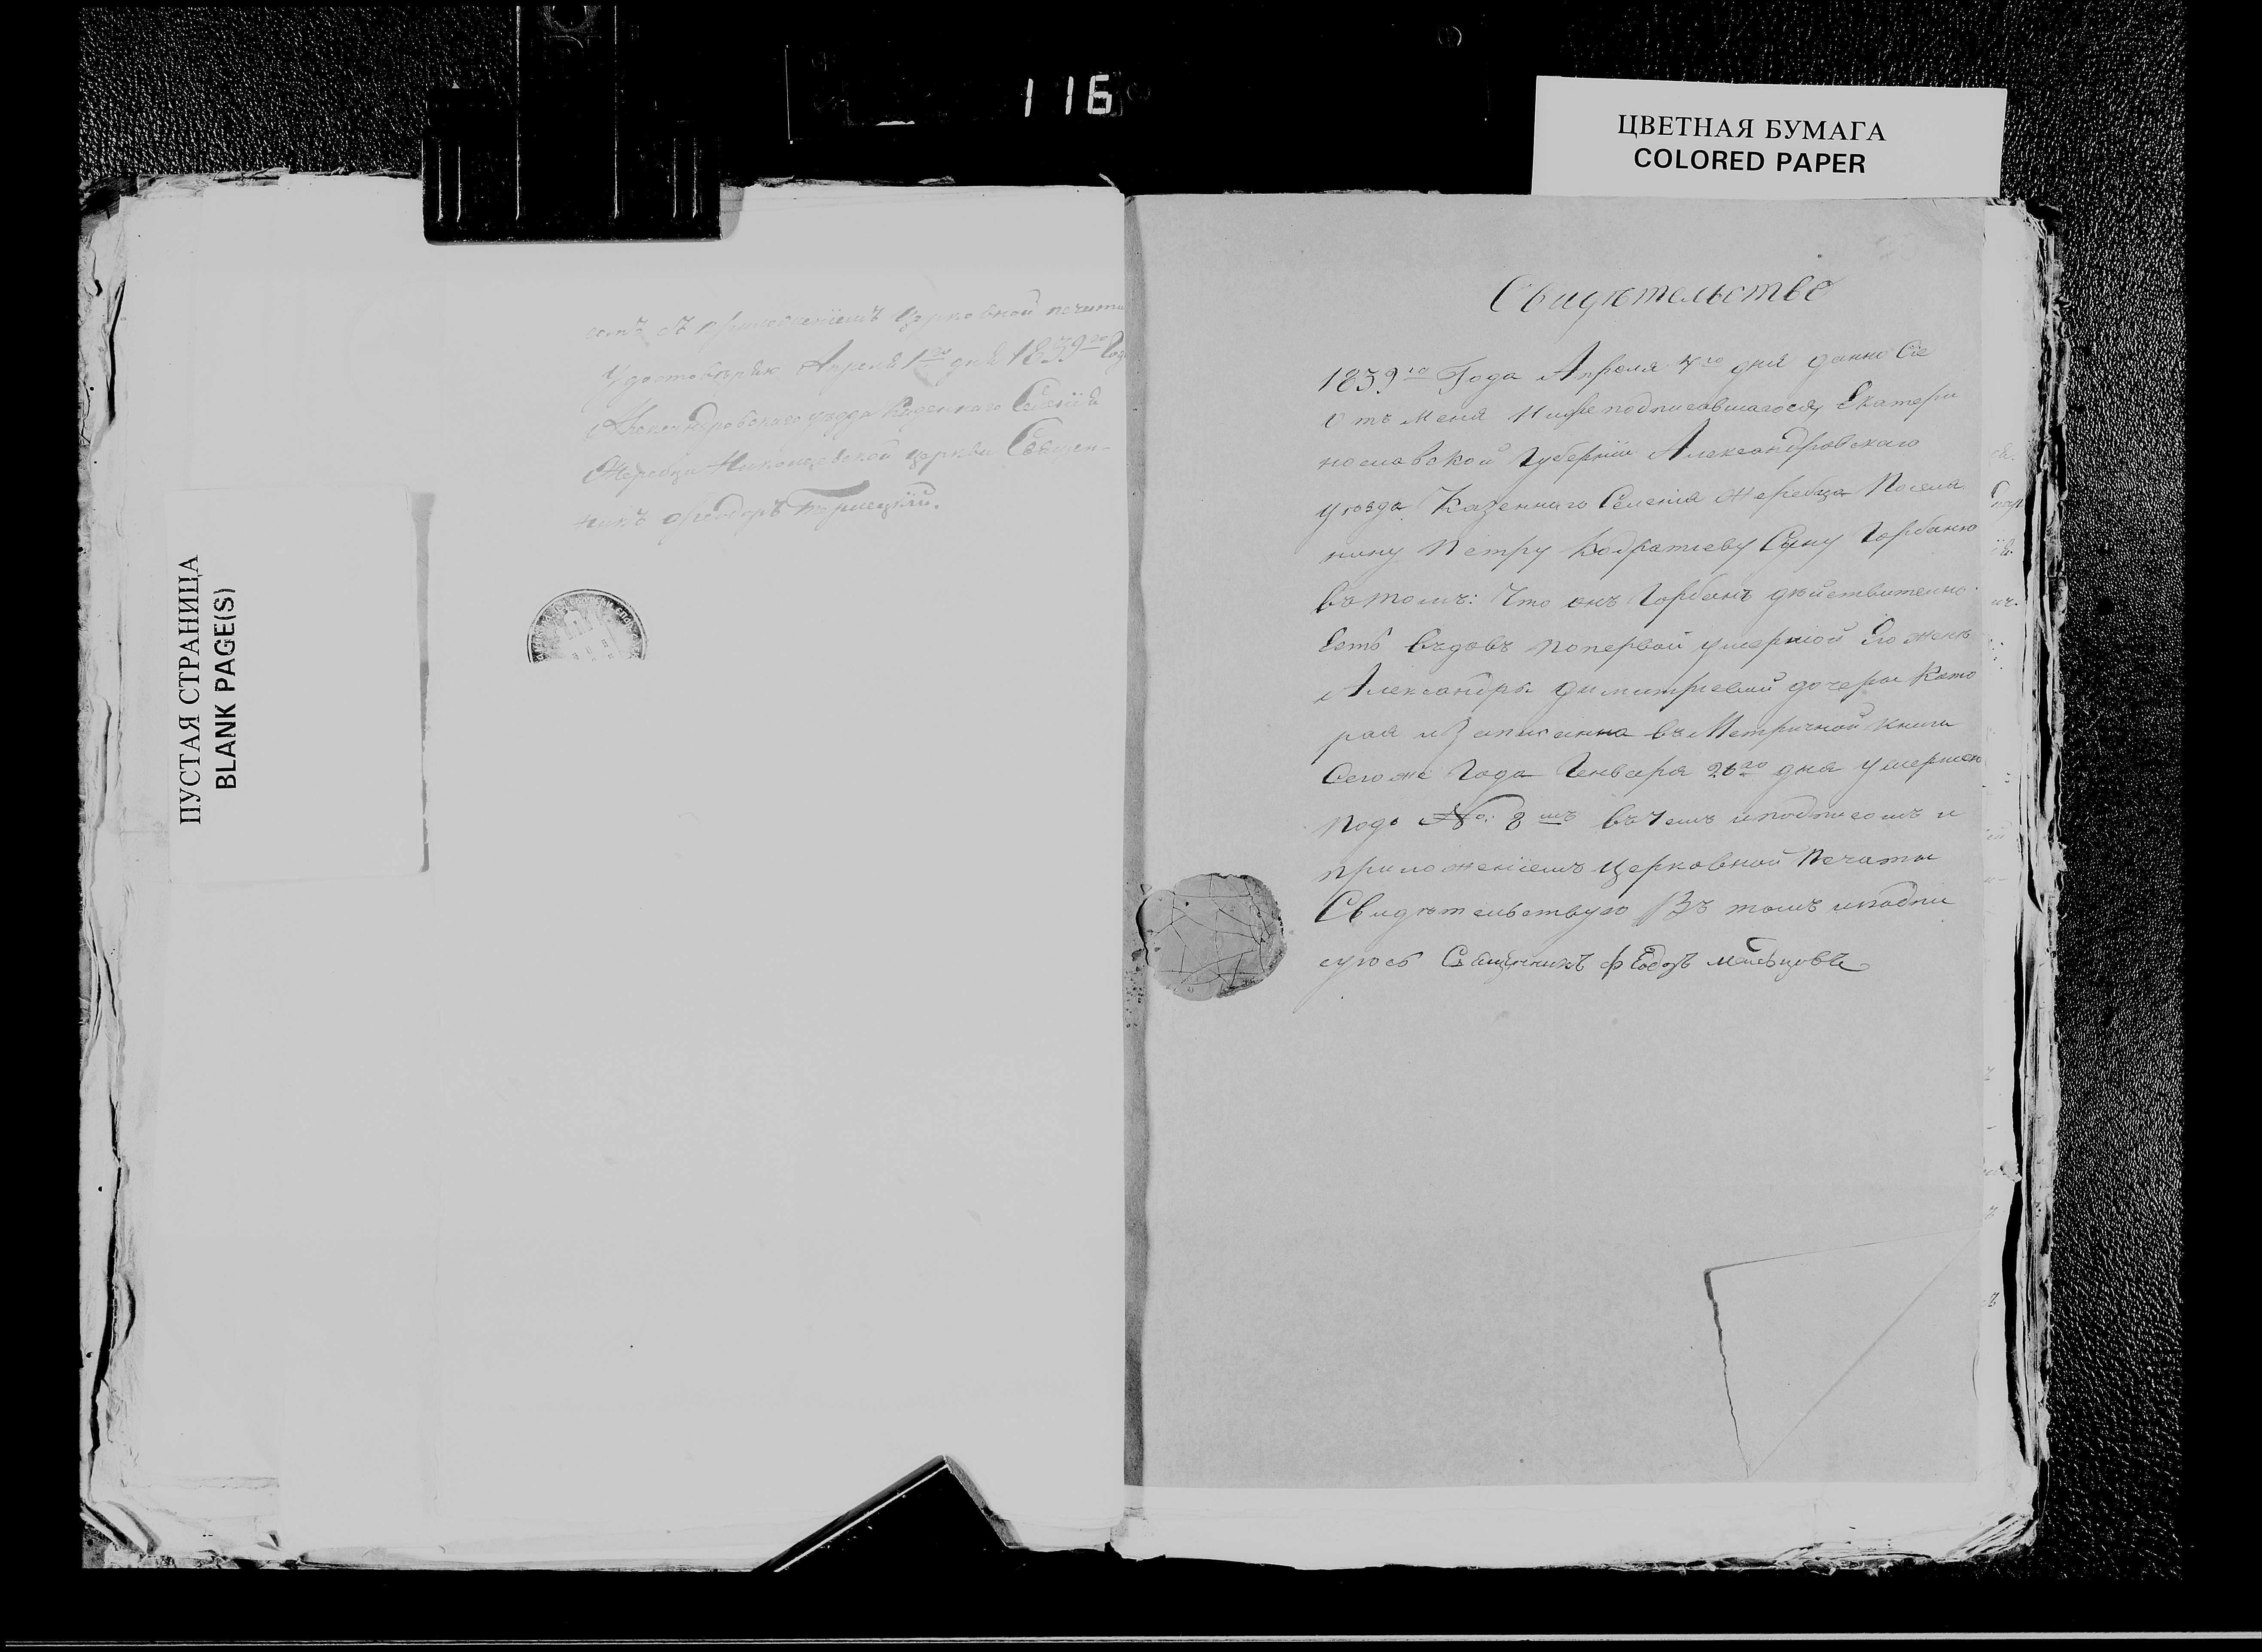 116
ЦВЕТНАЯ БУМАГА
COLORED PAPER
ПУСТАЯ СТРАНИЦА
BLANK PAGE(S)
съ приложеніемъ церковной печати
Удостовѣряю Апреля 1го дня 1839го Года
Александровскаго уѣзда Казеннаго Селенія
Жеребца Николаевской церкви Священ-
никъ Ѳеодоръ
Свидѣтельство
1839го Года Апреля 4го дня данно Сіе
отъ меня Нижеподписавшагося, Екатери
нославской Губерніи Александровскаго
уѣзда Казеннаго Селенія Жеребца Поселя
нину Петру Кодратіеву Сыну Горбаню
въ томъ: Что онъ Горбань дѣйствительно
Есть въдовъ попервой умершой Его женѣ
Александры Димитріевой дочеры Кото
рая изаписанна въ Метричной книги
Сегоже Года Генваря 26го дня умершею
подъ No: 8мъ въ чемъ иподписомъ и
приложеніемъ церковной Печаты
Свидѣтельствую Въ томъ иподпи
суюсь Священникъ Ѳеодоръ